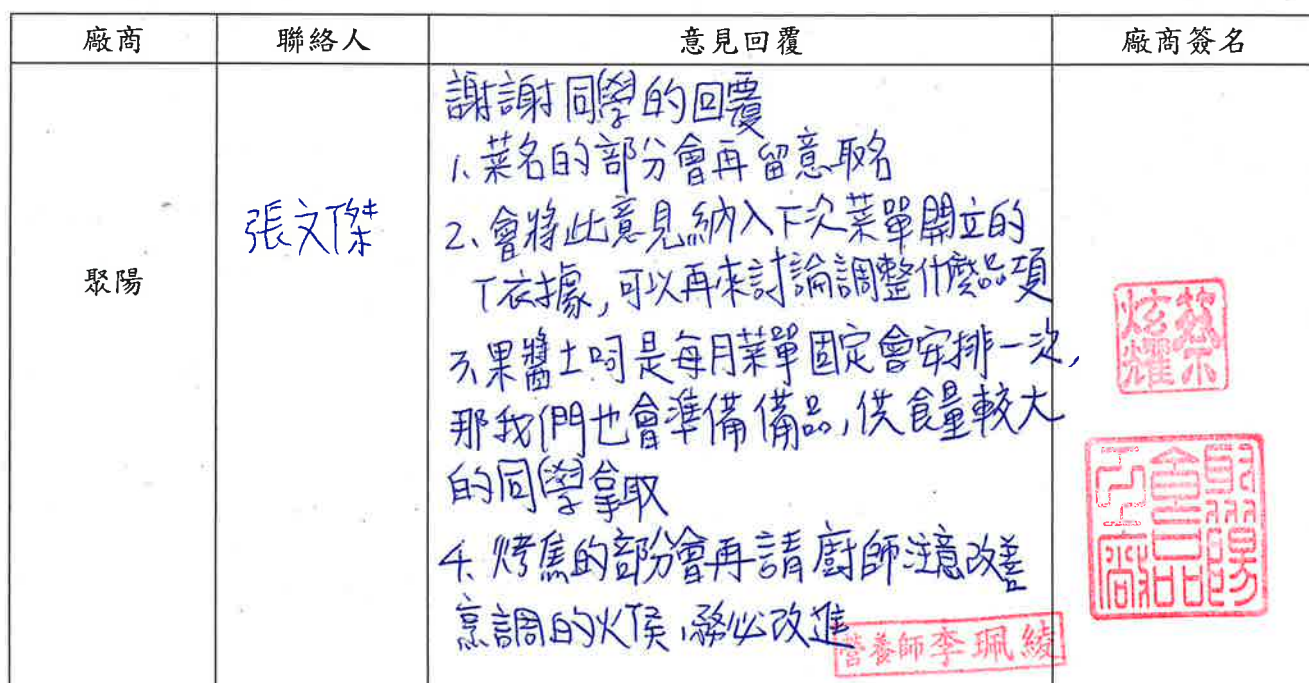 廠商 聯絡人 意見回覆 廠商簽名
聚陽
張文傑
謝謝同學的回覆
1、菜名的部分會再留意取名
2、會將此意見納入下次菜單開立的
依據,可以再來討論調整什麼品項
3、果醬土司是每月菜單固定會安排一次,
那我們也會準備備品,供食量較大
的同學拿取
4、烤焦的部分會再請廚師注意改善
烹調的火侯,務必改進
營養師李珮綾
蔡炫耀
聚陽食品工廠